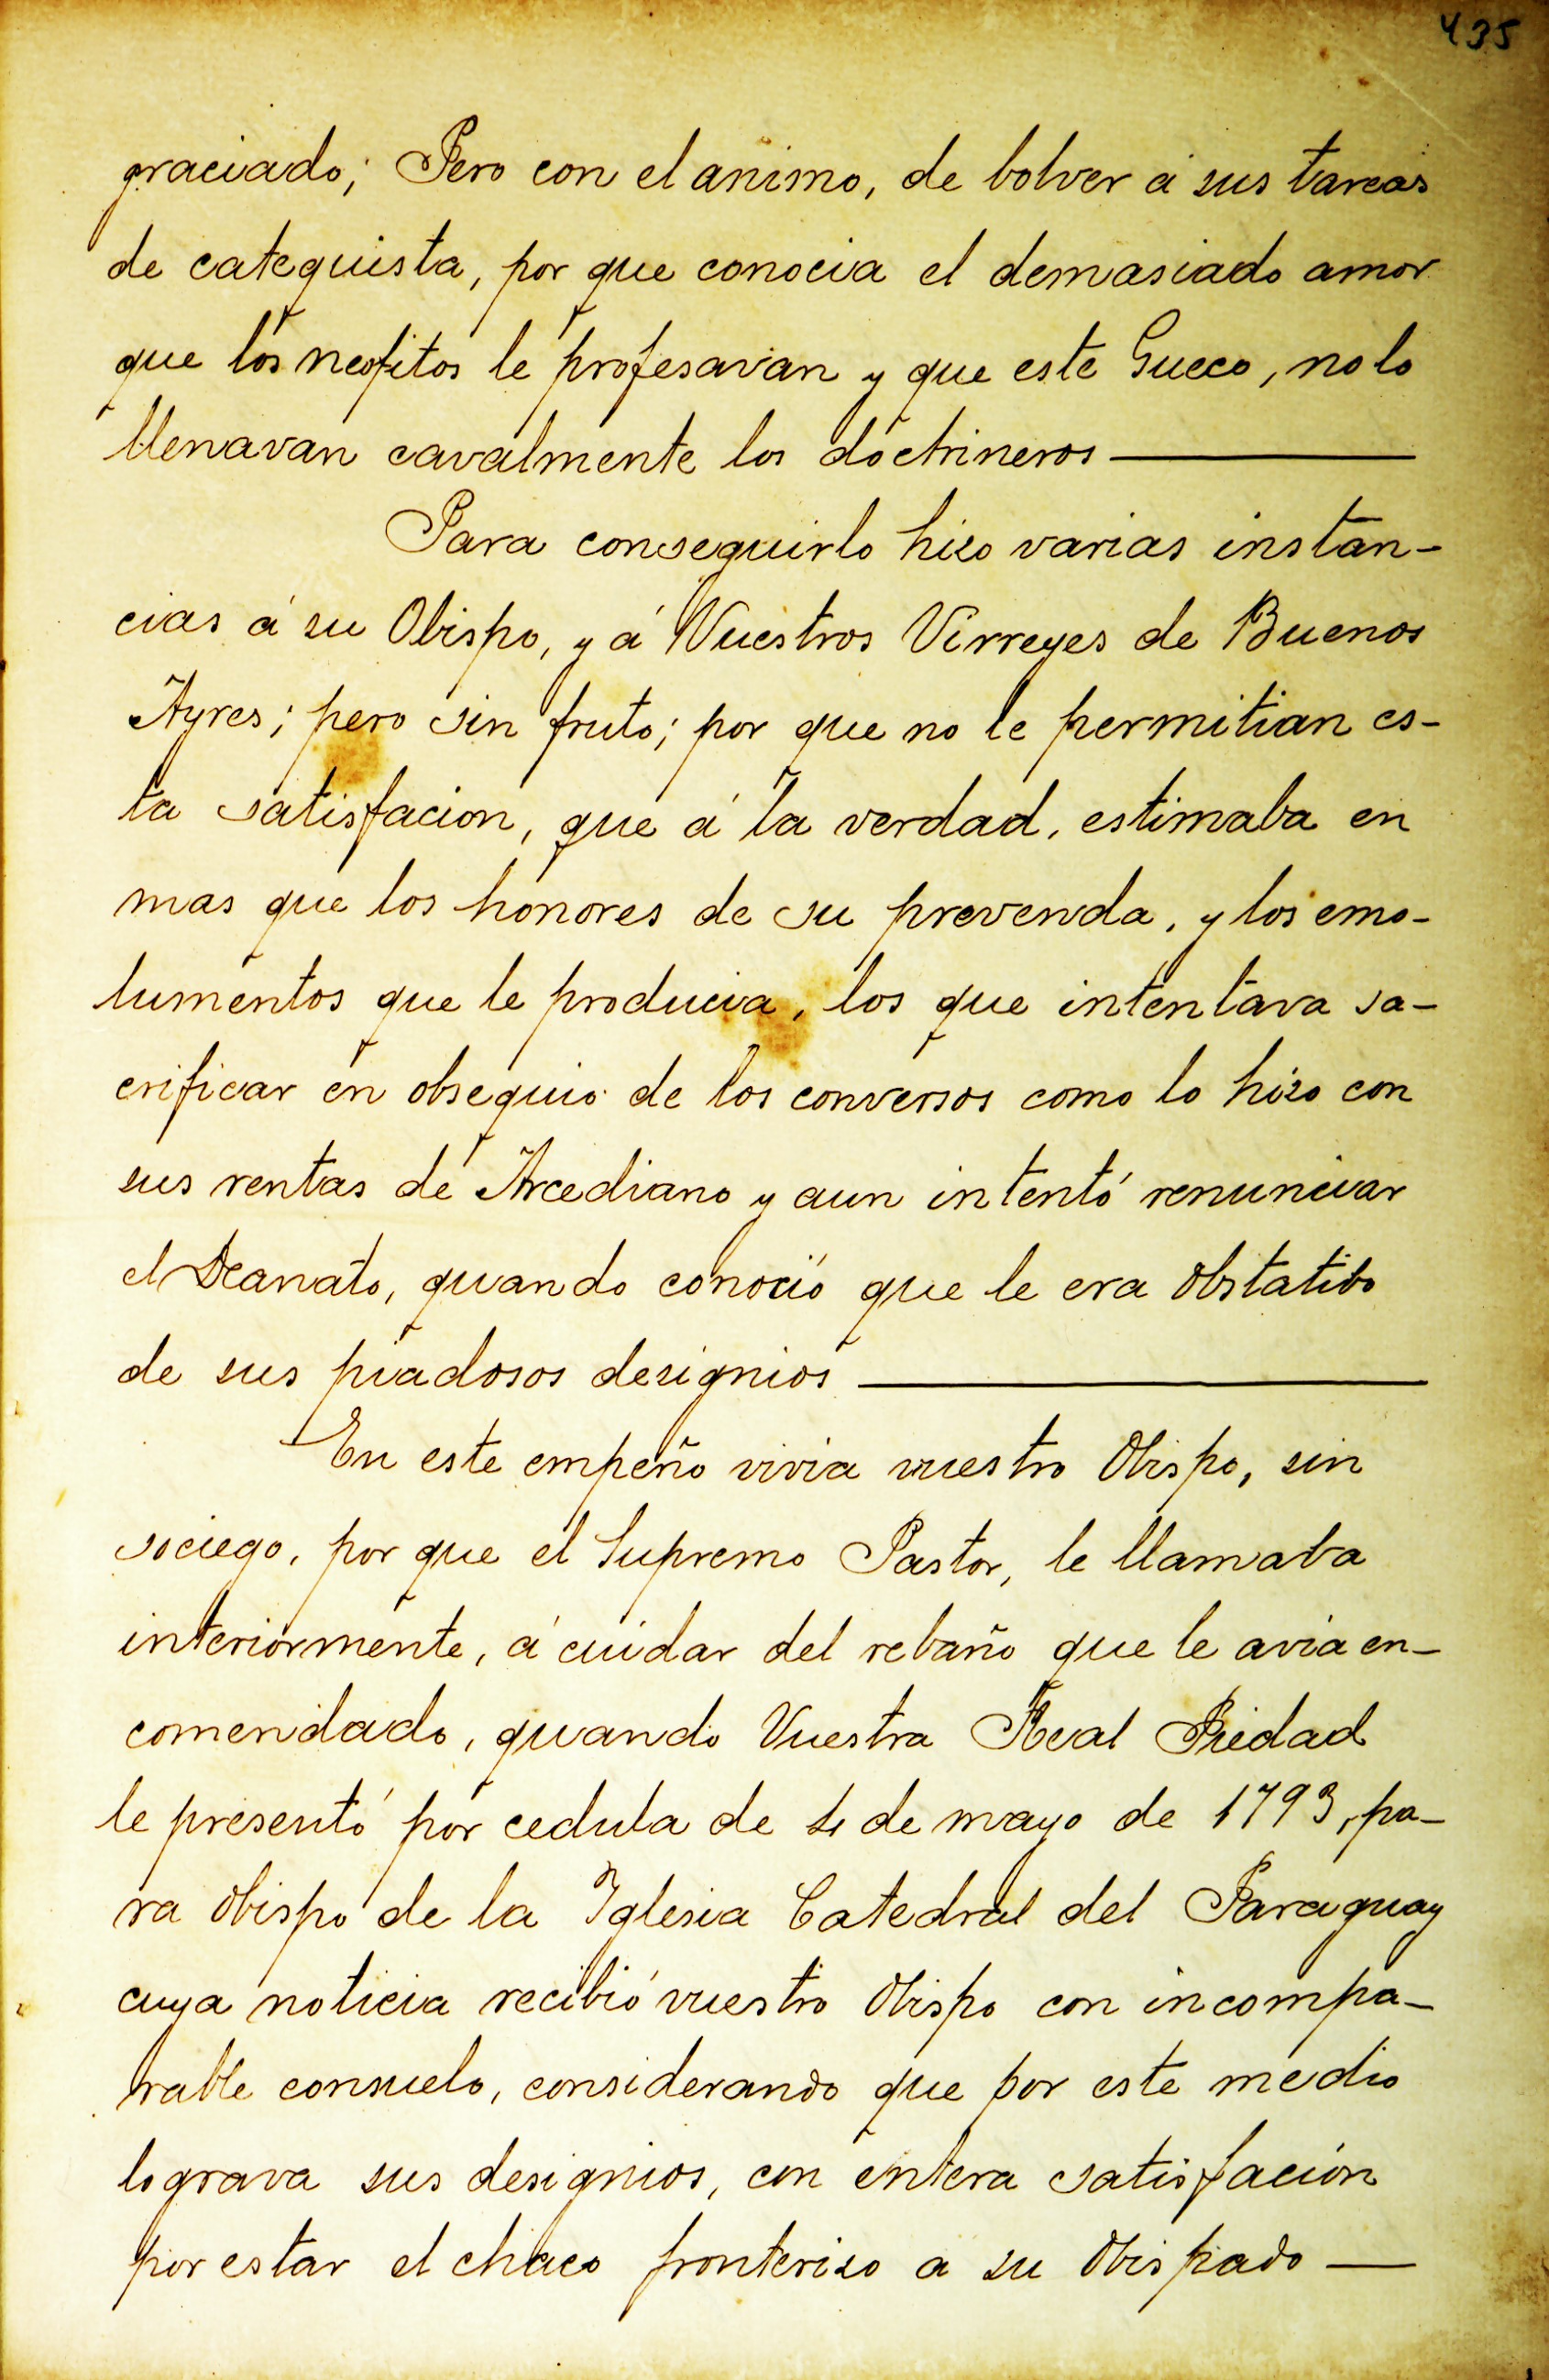 435
graciado; Pero con el animo, de bolver á sus tareas
de catequista, por que conocia el demasiado amor
que los neofitos le profesavan y que este Gueco, no lo
llenavan cavalmente los doctrineros
Para conseguirlo hizo varias instan-
cias á su Obispo, y á Vuestros Virreyes de Buenos
Ayres; pero sin fruto; por que no le permitian es-
ta satisfacion, que á la verdad, estimaba en
mas que los honores de su prevenda, y los emo-
lumentos que le producia, los que intentava sa-
crificar en obsequio de los conversos como lo hizo con
sus rentas de Arcediano y aun intentó renunciar
el Deanato, quando conoció que le era obstatibo
de sus piadosos designios
En este empeño vivia vuestro Obispo, sin
sociego, por que el Supremo Pastor, le llamaba
interiormente, á cuidar del rebaño que le avia en-
comendado, quando Vuestra Real Piedad
le presentó por cedula de de mayo de 1793, pa-
ra obispo de la Iglesia Catedral del Paraguay
cuya noticia recibió vuestro Obispo con incompa-
rable consuelo, considerando que por este medio
lograva sus designios, con entera satisfación
por estar el chaco fronterizo a su Obispado